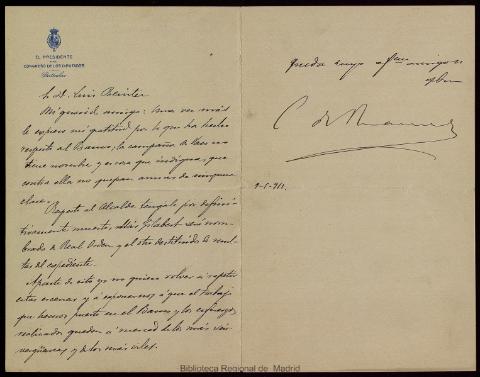 EL PRESIDENTE
DEL
CONGRESO DE LOS DIPUTADOS
Particular
S. D. Luis
Mi querido amigo: Una vez más
le expreso mi gratitud por lo que ha hecho
respecto al Banco; la campaña de
tiene nombre y es cosa que indigna, que
contra ella no quepan armas de ninguna
clase.
Respecto al Alcalde téngalo por defini-
tivamente muerto; Gilabert será nom-
brado de Real Orden y el otro destituido de resul-
tas del expediente.
Aparte de esto yo no quiero volver a repetir
estas escenas y a exponernos a que el trabajo
que hemos puesto en el Banco y los esfuerzos
realizados queden a merced de los más sin-
vergüenzas y de los más viles.
Queda suyo affmo amigo
9-5-911.
Biblioteca Regional de Madrid